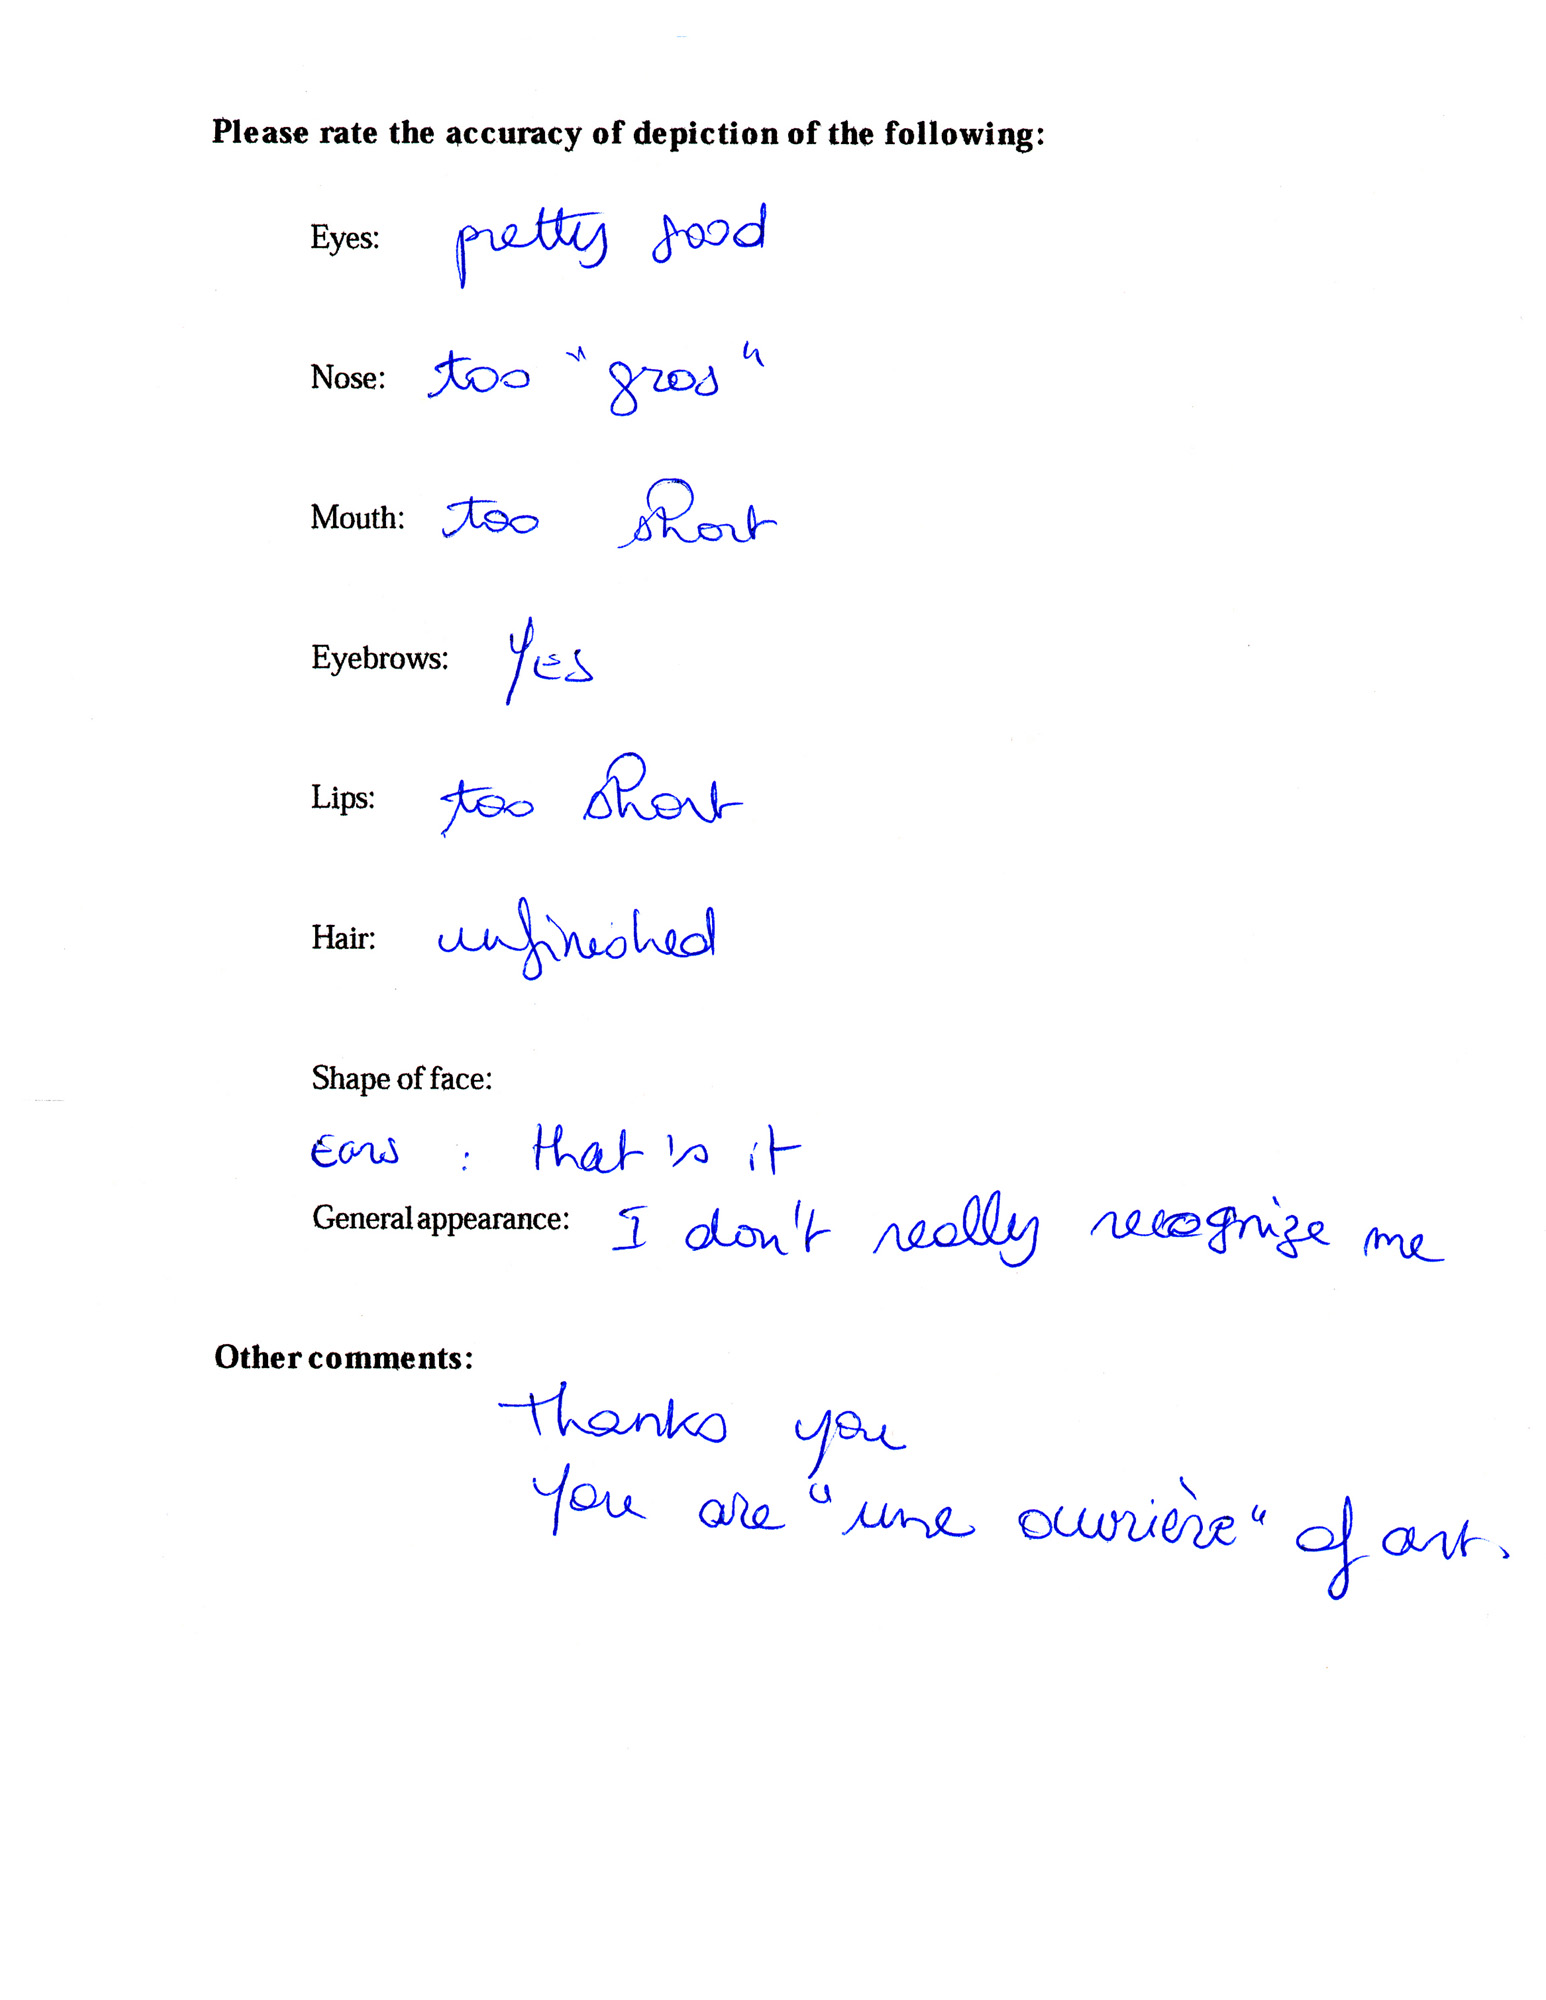 Please rate the accuracy of depiction of the following:
Eyes: pretty good
Nose: too "gros"
Mouth: too short
Eyebrows: Yes
Lips: too short
Hair: unfinished
Shape of face:
Ears : that is it
General appearance: I don't really recognize me
Other comments:
thanks you
You are "une ouvrière" of art.